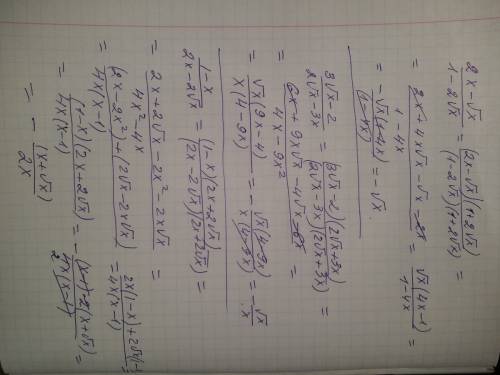 (2x-√x)/(1-2√x) = ((2x-√x)(1+2√x))/((1-2√x)(1+2√x)) =
= (2x+4x√x-√x-2x)/(1-4x) = √x(4x-1)/(1-4x)
= -√x(1-4x)/(1-4x) = -√x.
(3√x-2)/(2√x-3x) = ((3√x-2)(2√x+3x))/((2√x-3x)(2√x+3x)) =
= (6x+9x√x-4√x-6x)/(4x-9x²) =
= √x(9x-4)/(x(4-9x)) = -√x(4-9x)/(x(4-9x)) = -√x/x.
(1-x)/(2x-2√x) = ((1-x)(2x+2√x))/((2x-2√x)(2x+2√x)) =
= (2x+2√x-2x²-2x√x)/(4x²-4x) =
= ((2x-2x²)+(2√x-2x√x))/(4x(x-1)) = (2x(1-x)+2√x(1-x))/(4x(x-1))
= ((1-x)(2x+2√x))/(4x(x-1)) = -((x-1)·2(x+√x))/(4x(x-1)) =
= -(x+√x)/(2x)